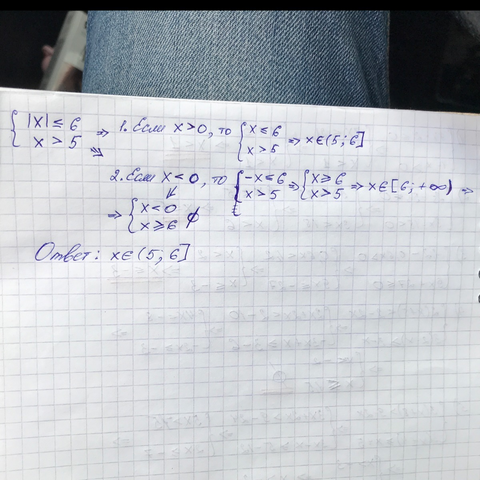 { |x| ≤ 6
x > 5 ⇒ 1. Если x>0, то { x ≤ 6
x > 5 ⇒ x∈(5; 6]
⇒ 2. Если x < 0, то { -x ≤ 6
x > 5 ⇒ { x ≥ 6
x > 5 ⇒ x∈[6; +∞) ⇒
⇒ { x < 0
x ≥ 6 ∅
Ответ: x∈(5; 6]